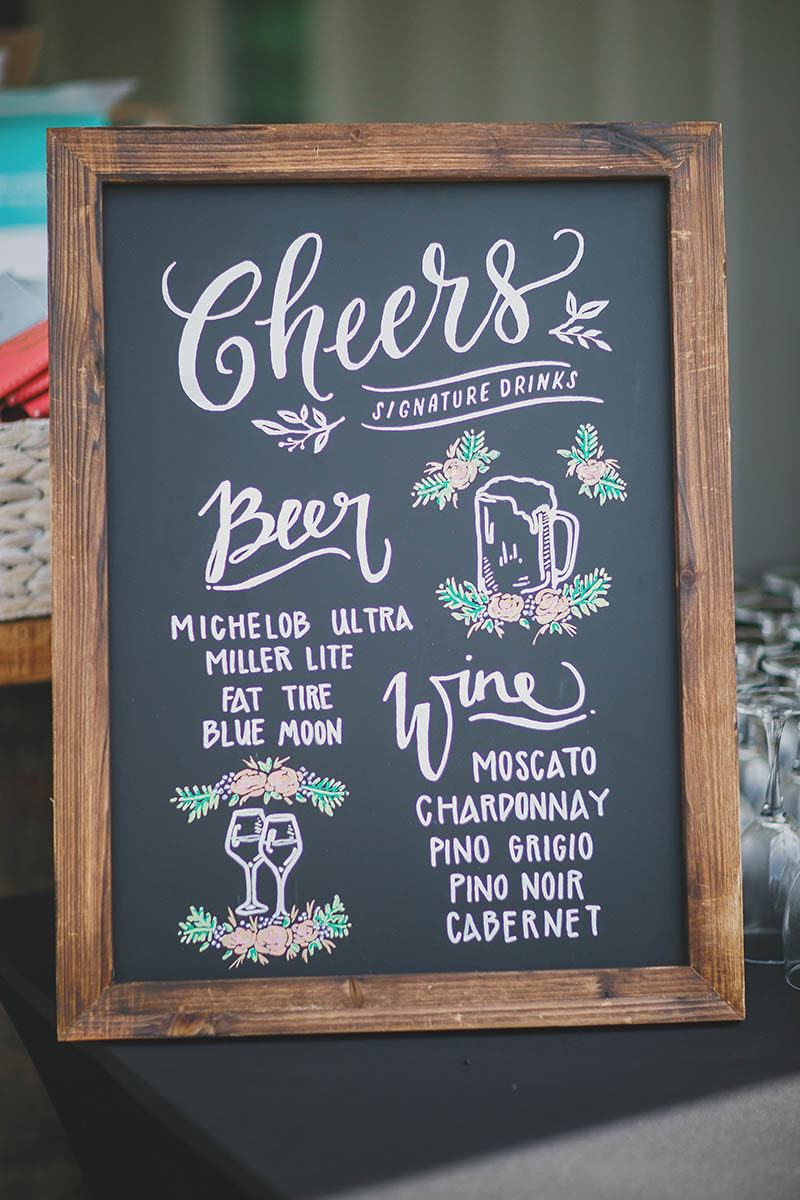 Cheers
SIGNATURE DRINKS
Beer
MICHELOB ULTRA
MILLER LITE
FAT TIRE
BLUE MOON
Wine
MOSCATO
CHARDONNAY
PINO GRIGIO
PINO NOIR
CABERNET